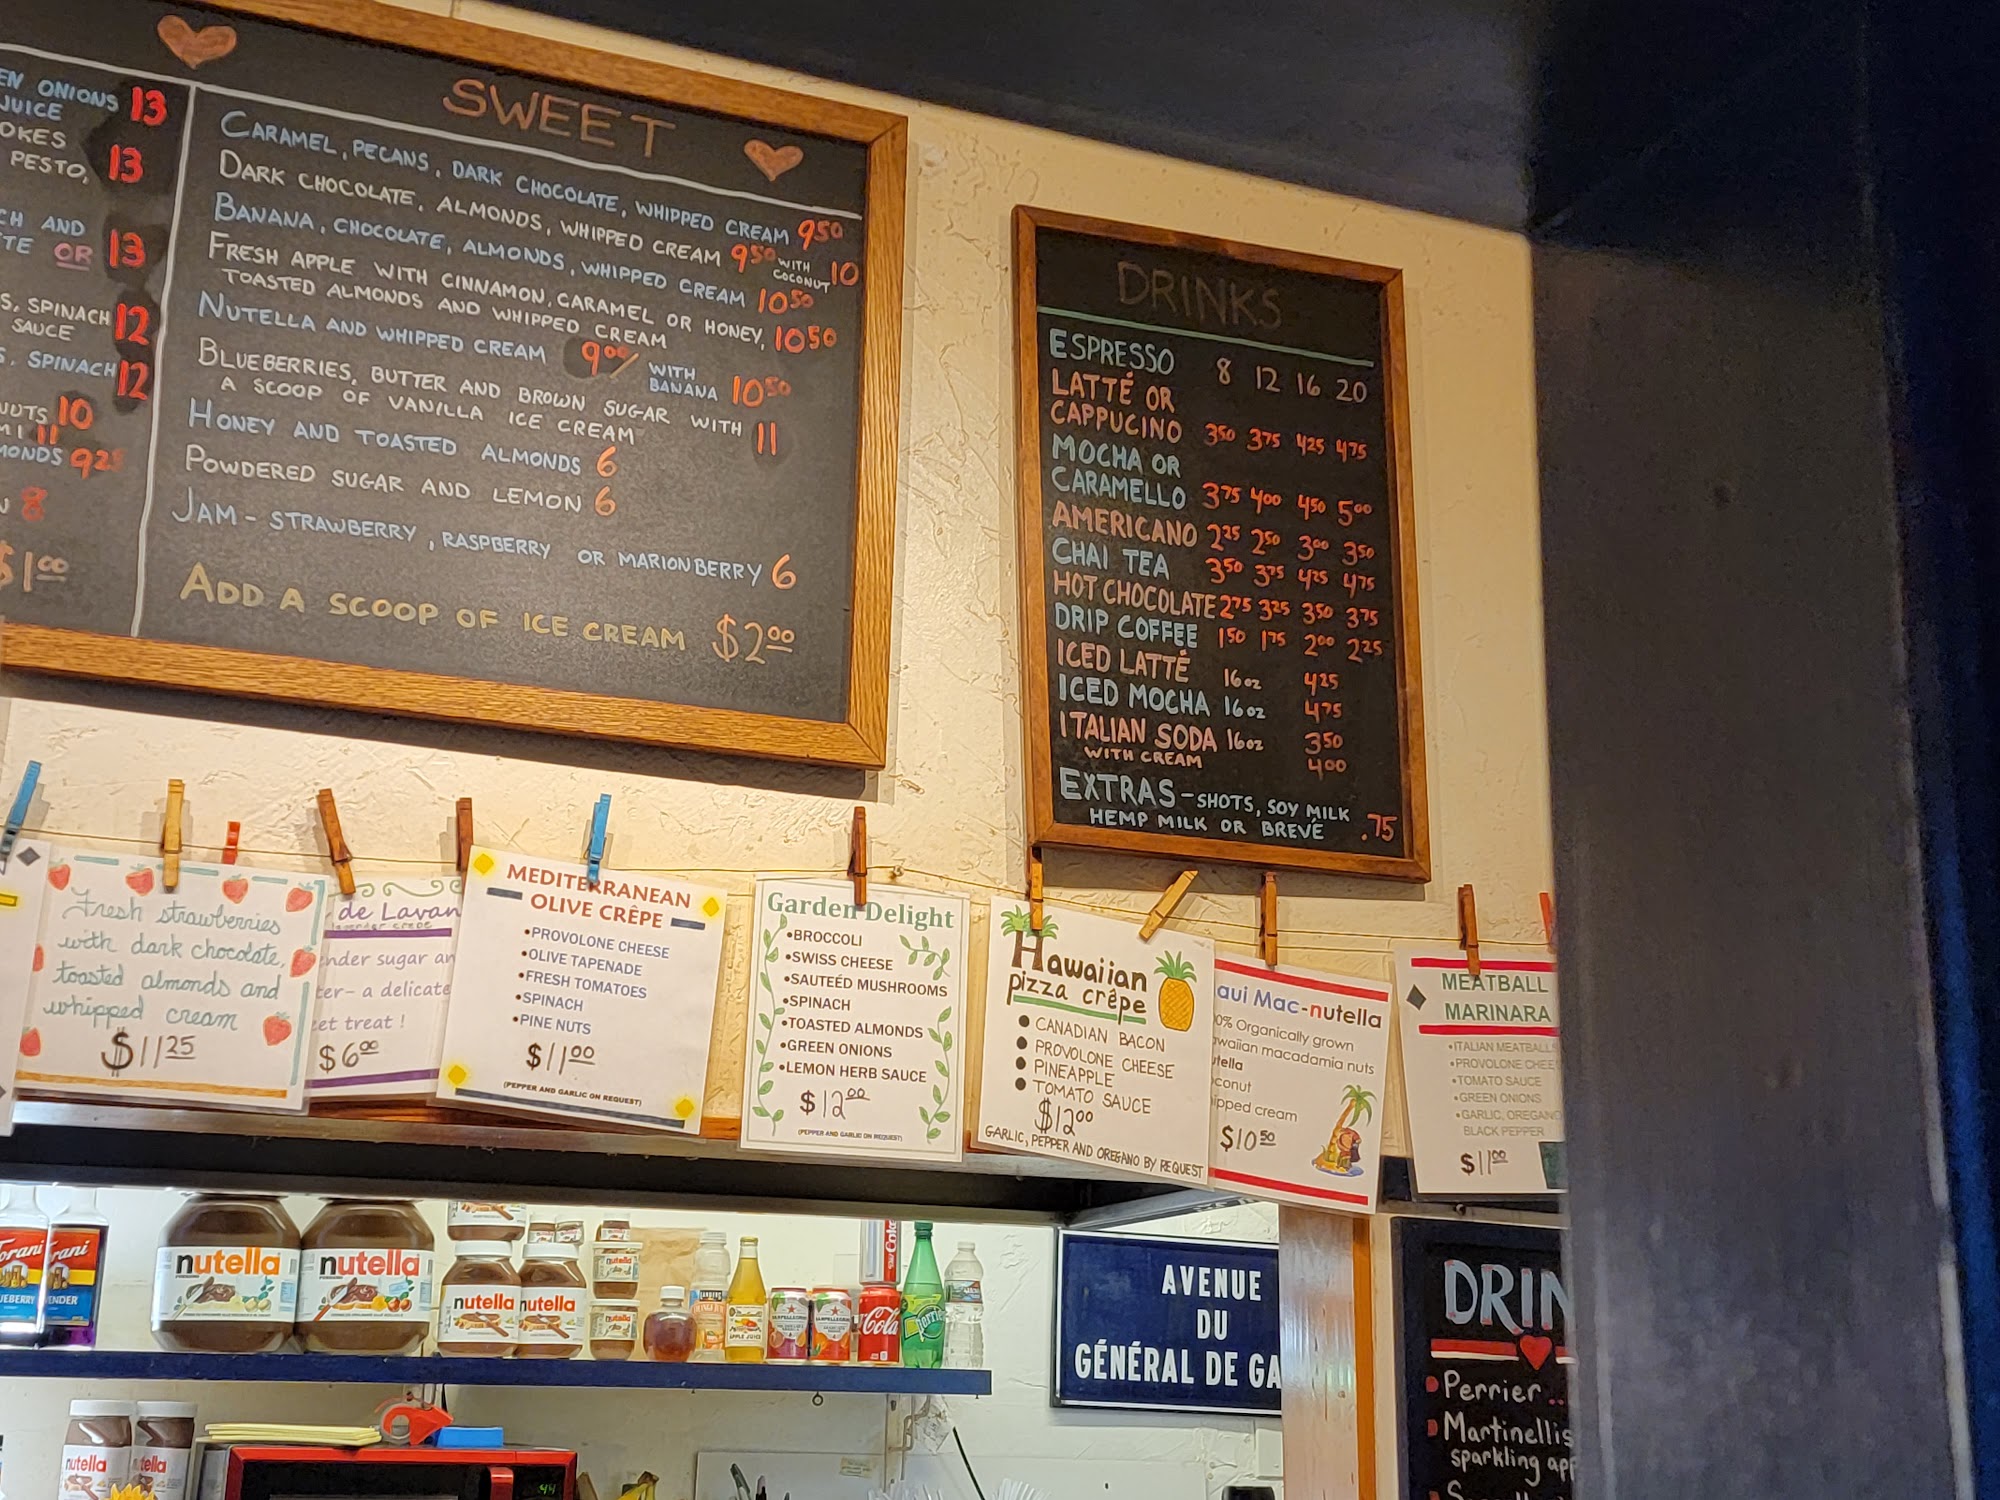 EN ONIONS 13
JUICE
OKES
PESTO, 13
CH AND
TE OR 13
S, SPINACH 12
SAUCE
S, SPINACH 12
NUTS 10
MI 11
MONDS 925
8
$1.00
SWEET
CARAMEL, PECANS, DARK CHOCOLATE, WHIPPED CREAM 950
DARK CHOCOLATE, ALMONDS, WHIPPED CREAM 950 WITH COCONUT 10
BANANA, CHOCOLATE, ALMONDS, WHIPPED CREAM 1050
FRESH APPLE WITH CINNAMON, CARAMEL OR HONEY,
TOASTED ALMONDS AND WHIPPED CREAM 1050
NUTELLA AND WHIPPED CREAM 900/ WITH BANANA 1050
BLUEBERRIES, BUTTER AND BROWN SUGAR WITH
A SCOOP OF VANILLA ICE CREAM 11
HONEY AND TOASTED ALMONDS 6
POWDERED SUGAR AND LEMON 6
JAM - STRAWBERRY, RASPBERRY OR MARIONBERRY 6
ADD A SCOOP OF ICE CREAM $2.00
DRINKS
ESPRESSO 8 12 16 20
LATTÉ OR
CAPPUCINO 350 375 425 475
MOCHA OR
CARAMELLO 375 400 450 500
AMERICANO 225 250 300 350
CHAI TEA 350 375 425 475
HOT CHOCOLATE 275 325 350 375
DRIP COFFEE 150 175 200 225
ICED LATTÉ 16oz 425
ICED MOCHA 16oz 475
ITALIAN SODA 16oz 350
WITH CREAM 400
EXTRAS - SHOTS, SOY MILK
HEMP MILK OR BREVÉ .75
Fresh strawberries
with dark chocolate,
toasted almonds and
whipped cream
$11 25
de Lavan
lavender crepe
nder sugar an
ter- a delicate
et treat !
$6 00
MEDITERRANEAN
OLIVE CRÊPE
•PROVOLONE CHEESE
•OLIVE TAPENADE
•FRESH TOMATOES
•SPINACH
•PINE NUTS
$11 00
(PEPPER AND GARLIC ON REQUEST)
Garden Delight
•BROCCOLI
•SWISS CHEESE
•SAUTEÉD MUSHROOMS
•SPINACH
•TOASTED ALMONDS
•GREEN ONIONS
•LEMON HERB SAUCE
$12 00
(PEPPER AND GARLIC ON REQUEST)
Hawaiian
pizza crêpe
● CANADIAN BACON
● PROVOLONE CHEESE
● PINEAPPLE
● TOMATO SAUCE
$12 00
GARLIC, PEPPER AND OREGANO BY REQUEST
aui Mac-nutella
0% Organically grown
waiian macadamia nuts
utella
conut
ipped cream
$10 50
MEATBALL
MARINARA
•ITALIAN MEATBALLS
•PROVOLONE CHEE
•TOMATO SAUCE
•GREEN ONIONS
•GARLIC, OREGANO
BLACK PEPPER
$11 00
orani
rani
UEBERRY
ENDER
nutella
nutella
nutella
nutella
nutella
nutella
APPLE JUICE
SANPELLEGRINO
SANPELLEGRINO
Coca-Cola
Coke
Perrier
AVENUE
DU
GÉNÉRAL DE GA
DRIN
Perrier..
Martinellis
sparkling app
nutella
nutella